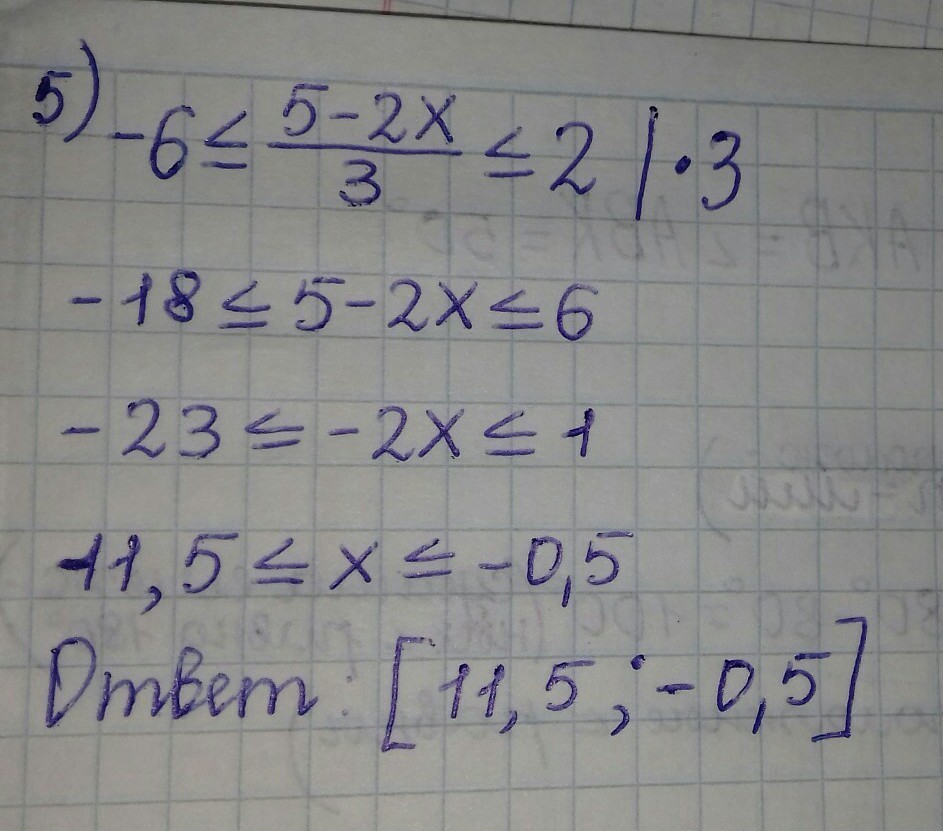 5) -6 ≤ (5-2x)/3 ≤ 2 | · 3
-18 ≤ 5-2x ≤ 6
-23 ≤ -2x ≤ 1
11,5 ≤ x ≤ -0,5
Ответ: [11,5; -0,5]